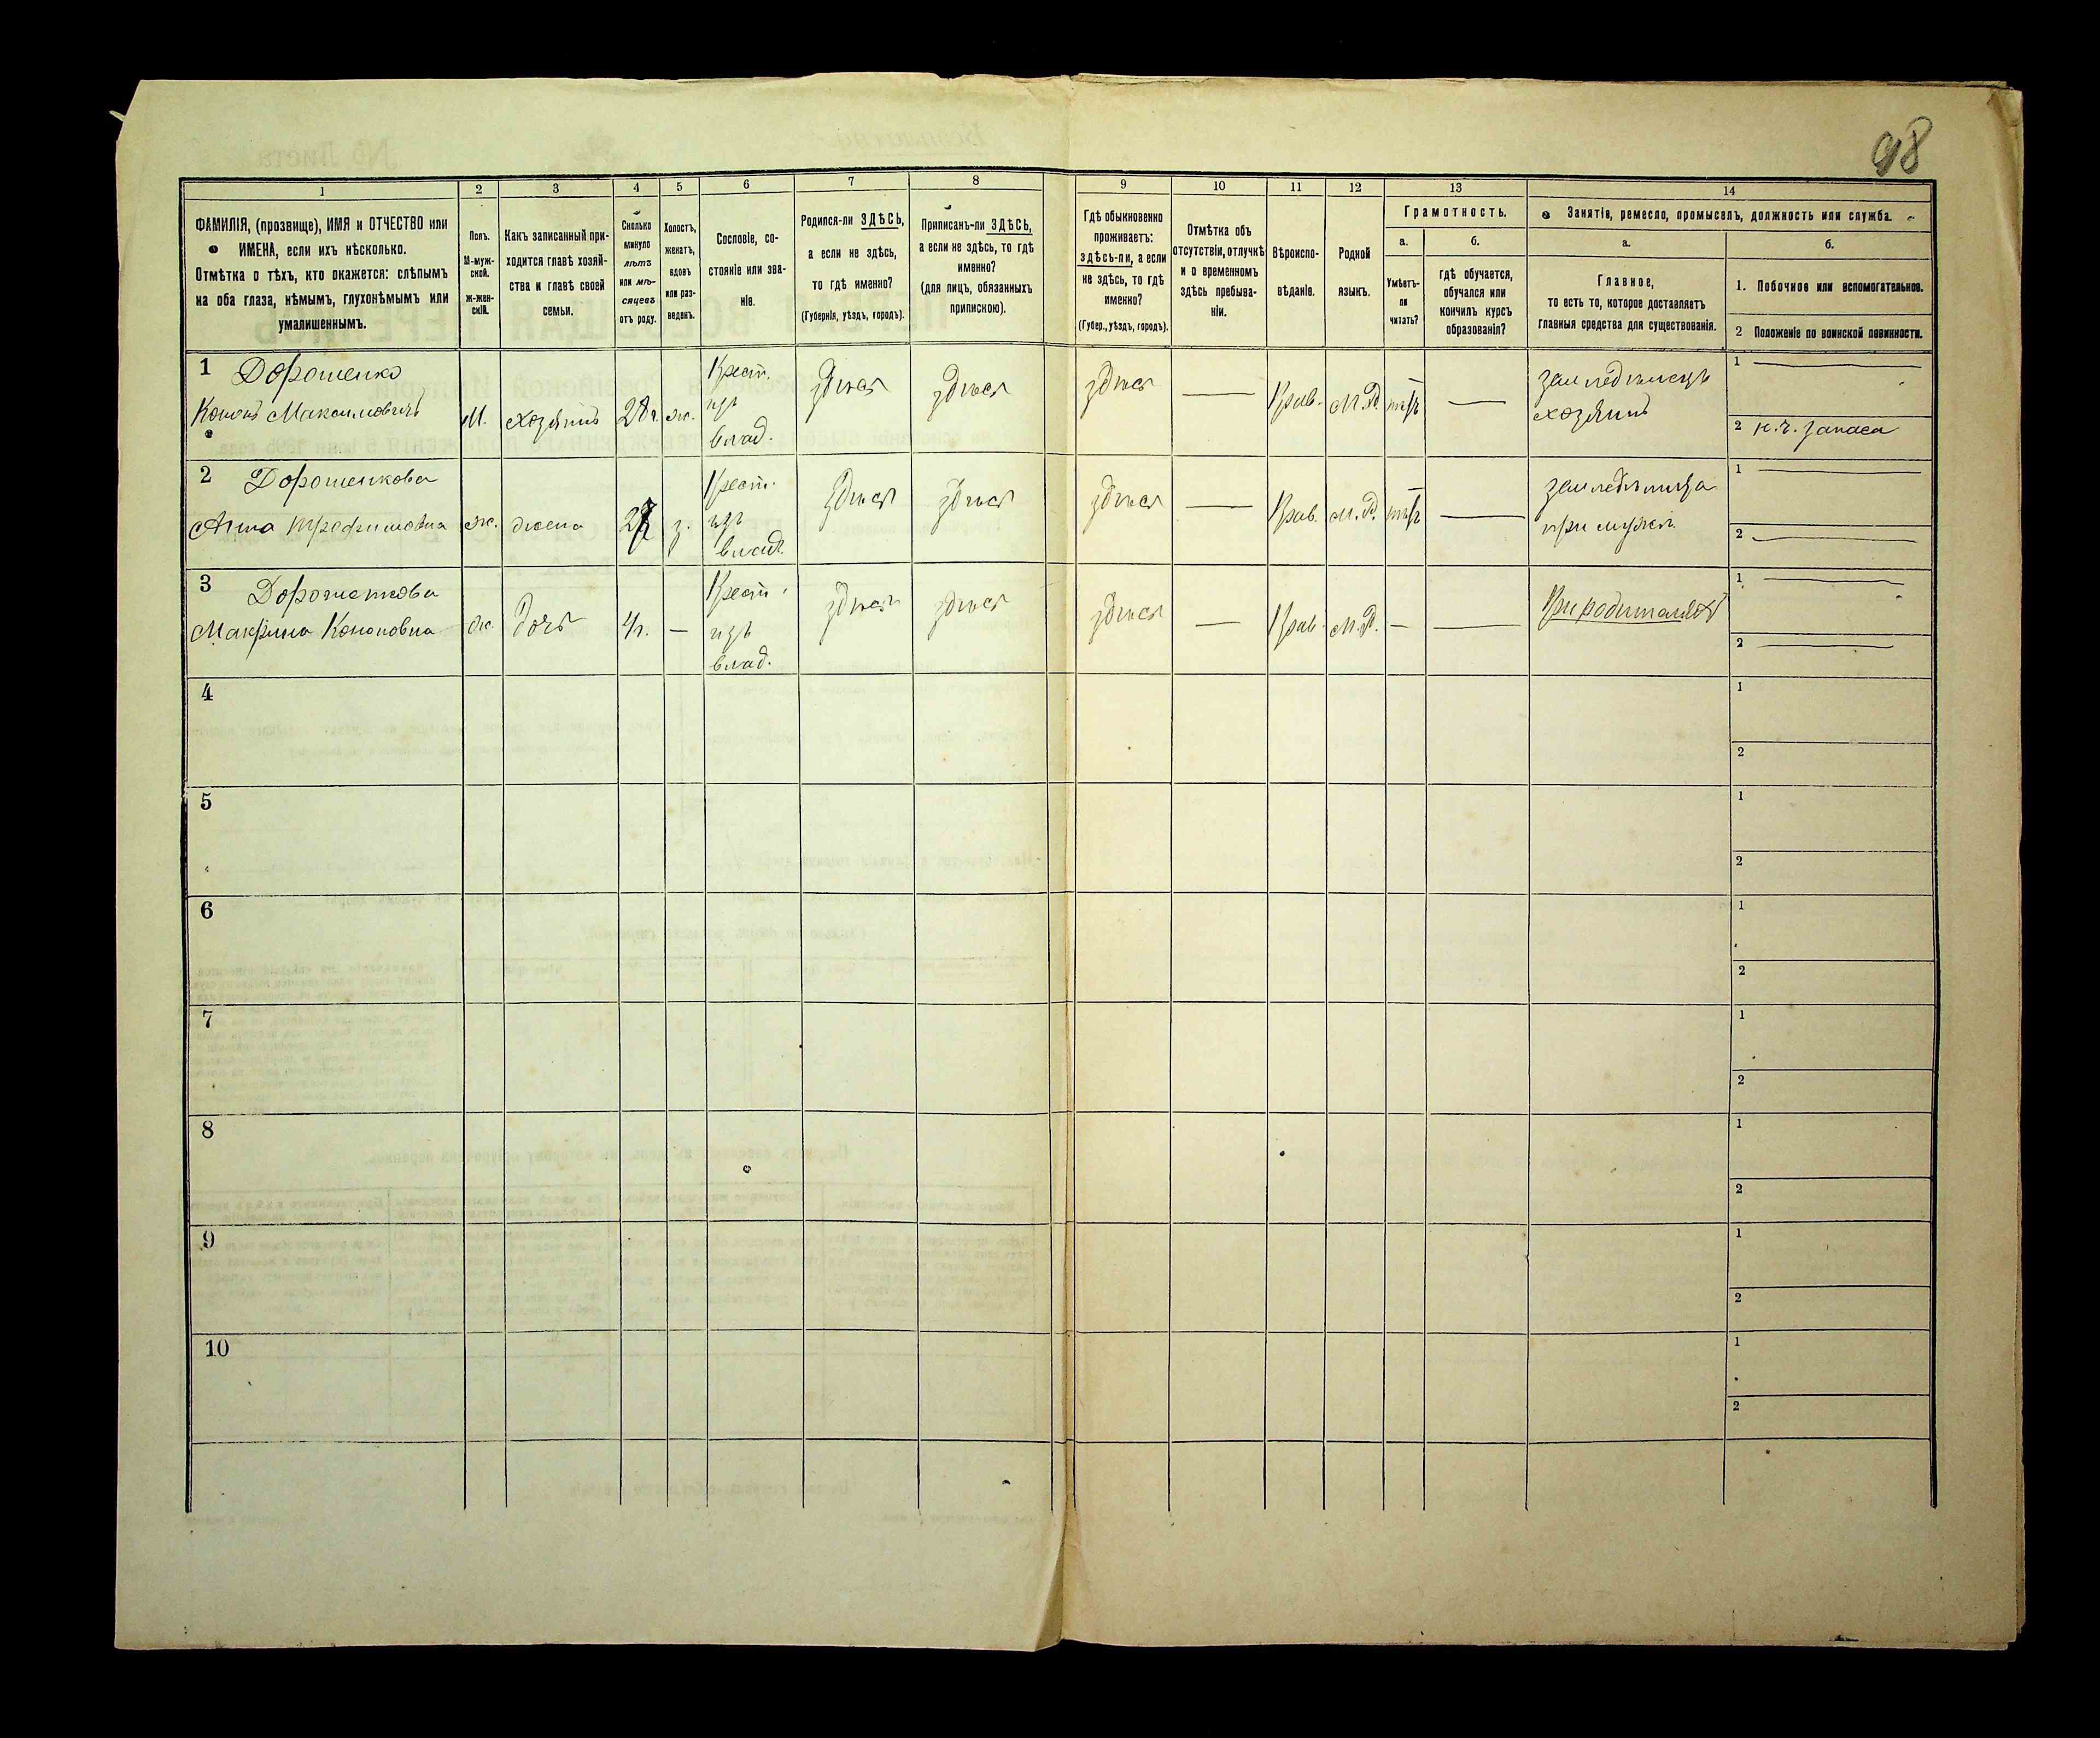 98
1 2 3 4 5 6 7 8 9 10 11 12 13 14
ФАМИЛІЯ, (прозвище), ИМЯ и ОТЧЕСТВО или
ИМЕНА, если ихъ нѣсколько.
Отмѣтка о тѣхъ, кто окажется: слѣпымъ
на оба глаза, нѣмымъ, глухонѣмымъ или
умалишеннымъ.
Полъ.
М-муж-
ской.
ж-жен-
скій.
Какъ записанный при-
ходится главѣ хозяй-
ства и главѣ своей
семьи.
Сколько
минуло
лѣтъ
или мѣ-
сяцевъ
отъ роду.
Холостъ,
женатъ,
вдовъ
или раз-
веденъ.
Сословіе, со-
стояніе или зва-
ніе.
Родился-ли ЗДѢСЬ,
а если не здѣсь,
то гдѣ именно?
(Губернія, уѣздъ, городъ).
Приписанъ-ли ЗДѢСЬ,
а если не здѣсь, то гдѣ
именно?
(для лицъ, обязанныхъ
припискою).
Гдѣ обыкновенно
проживаетъ:
здѣсь-ли, а если
не здѣсь, то гдѣ
именно?
(Губер., уѣздъ, городъ).
Отмѣтка объ
отсутствіи, отлучкѣ
и о временномъ
здѣсь пребыва-
ніи.
Вѣроиспо-
вѣданіе.
Родной
языкъ.
Грамотность.
а.
Умѣетъ-
ли
читать?
б.
гдѣ обучается,
обучался или
кончилъ курсъ
образованія?
Занятія, ремесло, промыселъ, должность или служба.
а.
Главное,
то есть то, которое доставляетъ
главныя средства для существованія.
б.
1. Побочное или вспомогательное.
2 Положеніе по воинской повинности.
1 Дорошенко
Кононъ Максимовичъ
М.
хозяинъ
28 г.
ж.
Крест.
изъ
влад.
здѣся
здѣся
здѣся
—
Прав.
М.Р.
нѣтъ
—
земледѣлецъ
хозяинъ
1 —
2 н.ч. запаса
2 Дорошенкова
Анна Трофимовна
ж.
жена
з.
Крест.
изъ
влад.
здѣся
здѣся
здѣся
—
Прав.
М.Р.
нѣтъ
—
при мужѣ
1 —
2 —
3 Дорошенкова
Макрина Кононовна
ж.
дочь
4 г.
—
Крест.
изъ
влад.
здѣся
здѣся
здѣся
—
Прав.
М.Р.
—
—
При родителяхъ
1 —
2 —
4
1
2
5
1
2
6
1
2
7
1
2
8
1
2
9
1
2
10
1
2